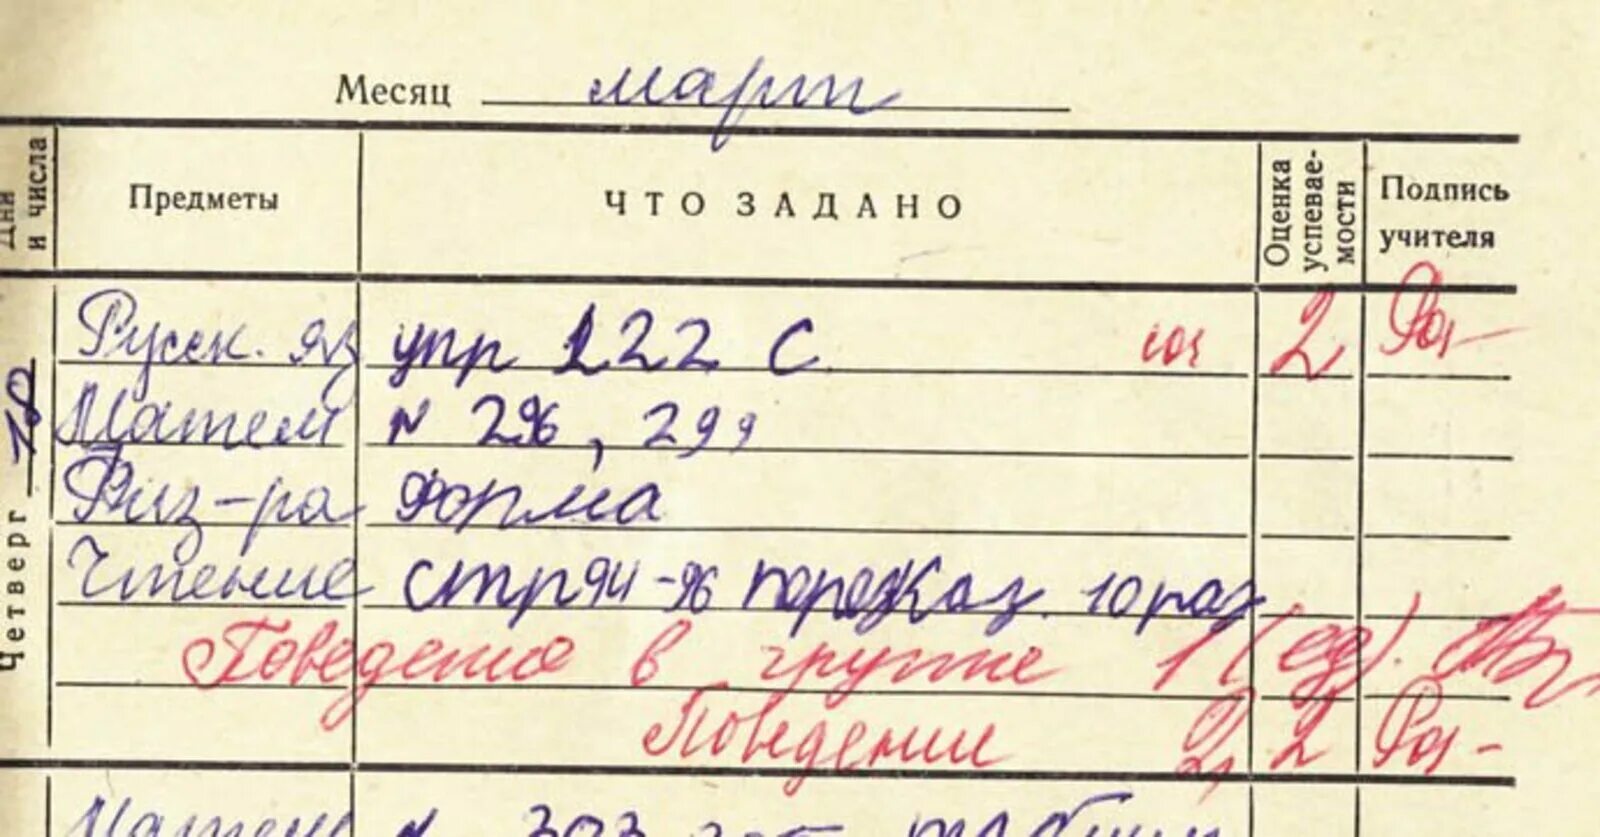 Месяц март
Дни и числа Предметы ЧТО ЗАДАНО Оценка успевае-мости Подпись учителя
Четверг 10
Русск. яз упр 222 с 2
Матем № 296, 299
Физ-ра форма
Чтение стр 94-96 порезказ. 10 раз
Поведение в группе 1 (ед).
Поведении 2, 2
Матем № 303